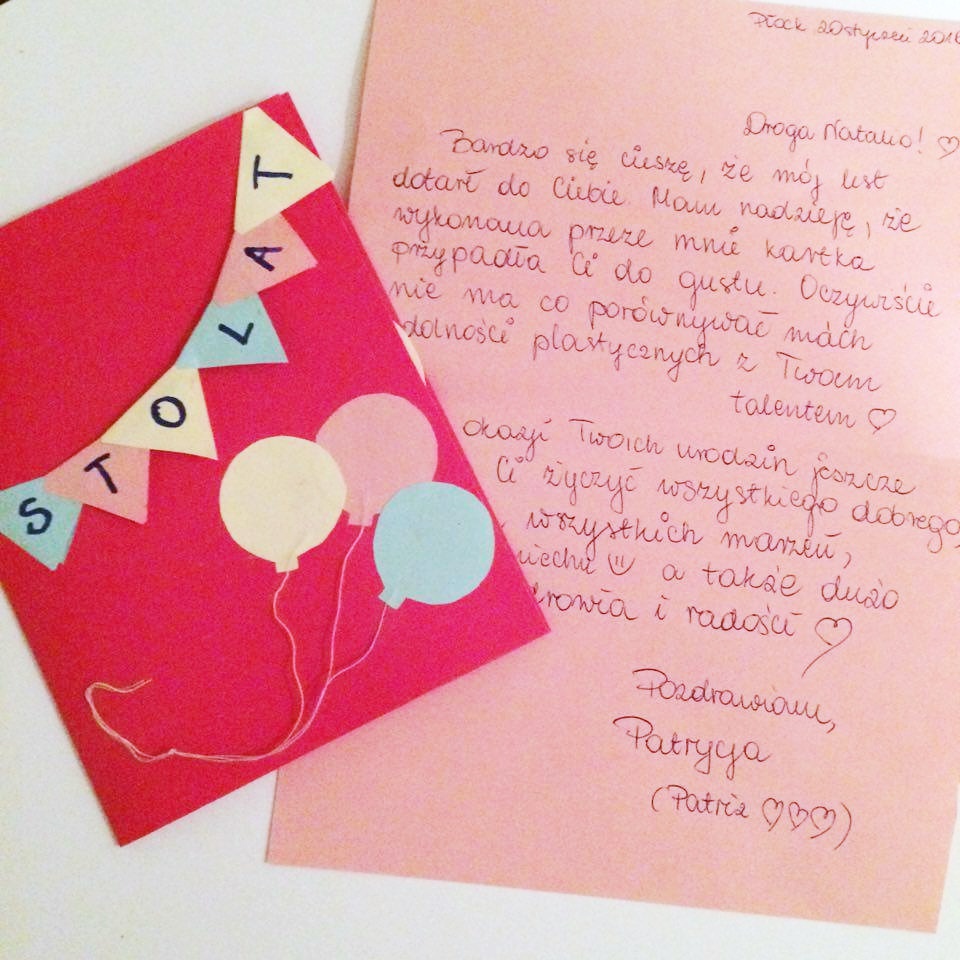 STO LAT
Płock, 20 styczeń 2016
Droga Natalio! ♡
Bardzo się cieszę, że mój list
dotarł do Ciebie. Mam nadzieję, że
wykonana przeze mnie kartka
przypadła Ci do gustu. Oczywiście
nie ma co porównywać moich
dolności plastycznych z Twoim
talentem ♡
okazji Twoich urodzin jeszcze
Ci życzyć wszystkiego dobrego,
, wszystkich marzeń,
miechu ☺ a także dużo
zdrowia i radości ♡
Pozdrawiam,
Patrycja
(Patrix ♡♡♡)